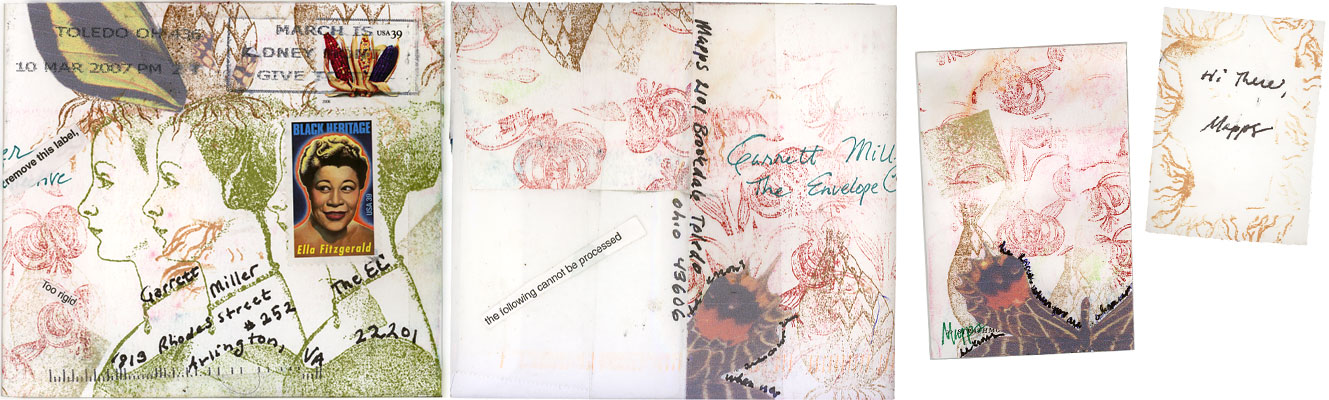 TOLEDO OH 436
10 MAR 2007 PM
MARCH IS
GIVE
USA 39
BLACK HERITAGE
USA 39
Ella Fitzgerald
remove this label,
Too rigid
Garrett Miller
The EC
Rhodes Street
# 252
Arlington, VA
22201
Mapps 2101 Brookdale Toledo
Ohio 43606
Garrett Mill
The Envelope C
the following cannot be processed
when
Mapps
Hi There,
Mapps